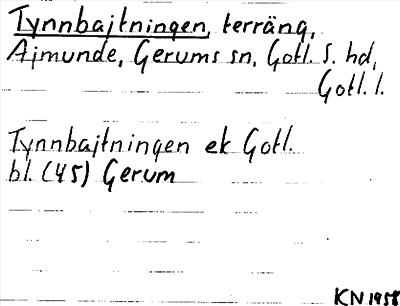 Tynnbajtningen, terräng,
Ajmunde, Gerums sn, Gotl. S. hd,
Gotl. l.
Tynnbajtningen ek Gotl.
bl. (45) Gerum
KN 1958